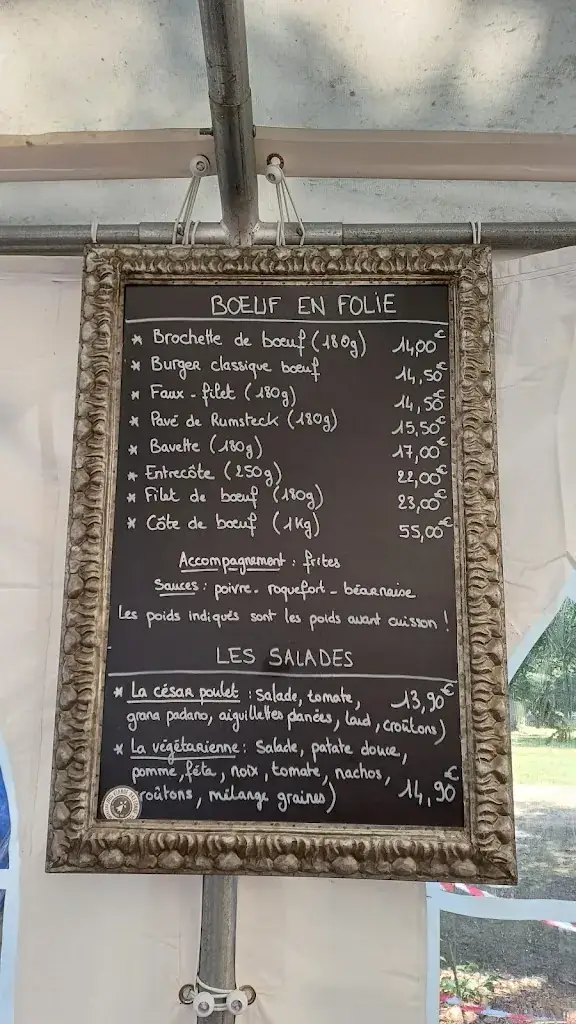 BOEUF EN FOLIE
* Brochette de boeuf (180g) 14,00€
* Burger classique boeuf 14,50€
* Faux-filet (180g) 14,50€
* Pavé de Rumsteck (180g) 15,50€
* Bavette (180g) 17,00€
* Entrecôte (250g) 22,00€
* Filet de boeuf (180g) 23,00€
* Côte de boeuf (1Kg) 55,00€
Accompagnement : frites
Sauces : poivre - roquefort - béarnaise
Les poids indiqués sont les poids avant cuisson !
LES SALADES
* La césar poulet : salade, tomate, 13,90€
grana padano, aiguillettes panées, lard, croûtons)
* La végétarienne : Salade, patate douce,
pomme, féta, noix, tomate, nachos,
croûtons, mélange graines) 14,90€